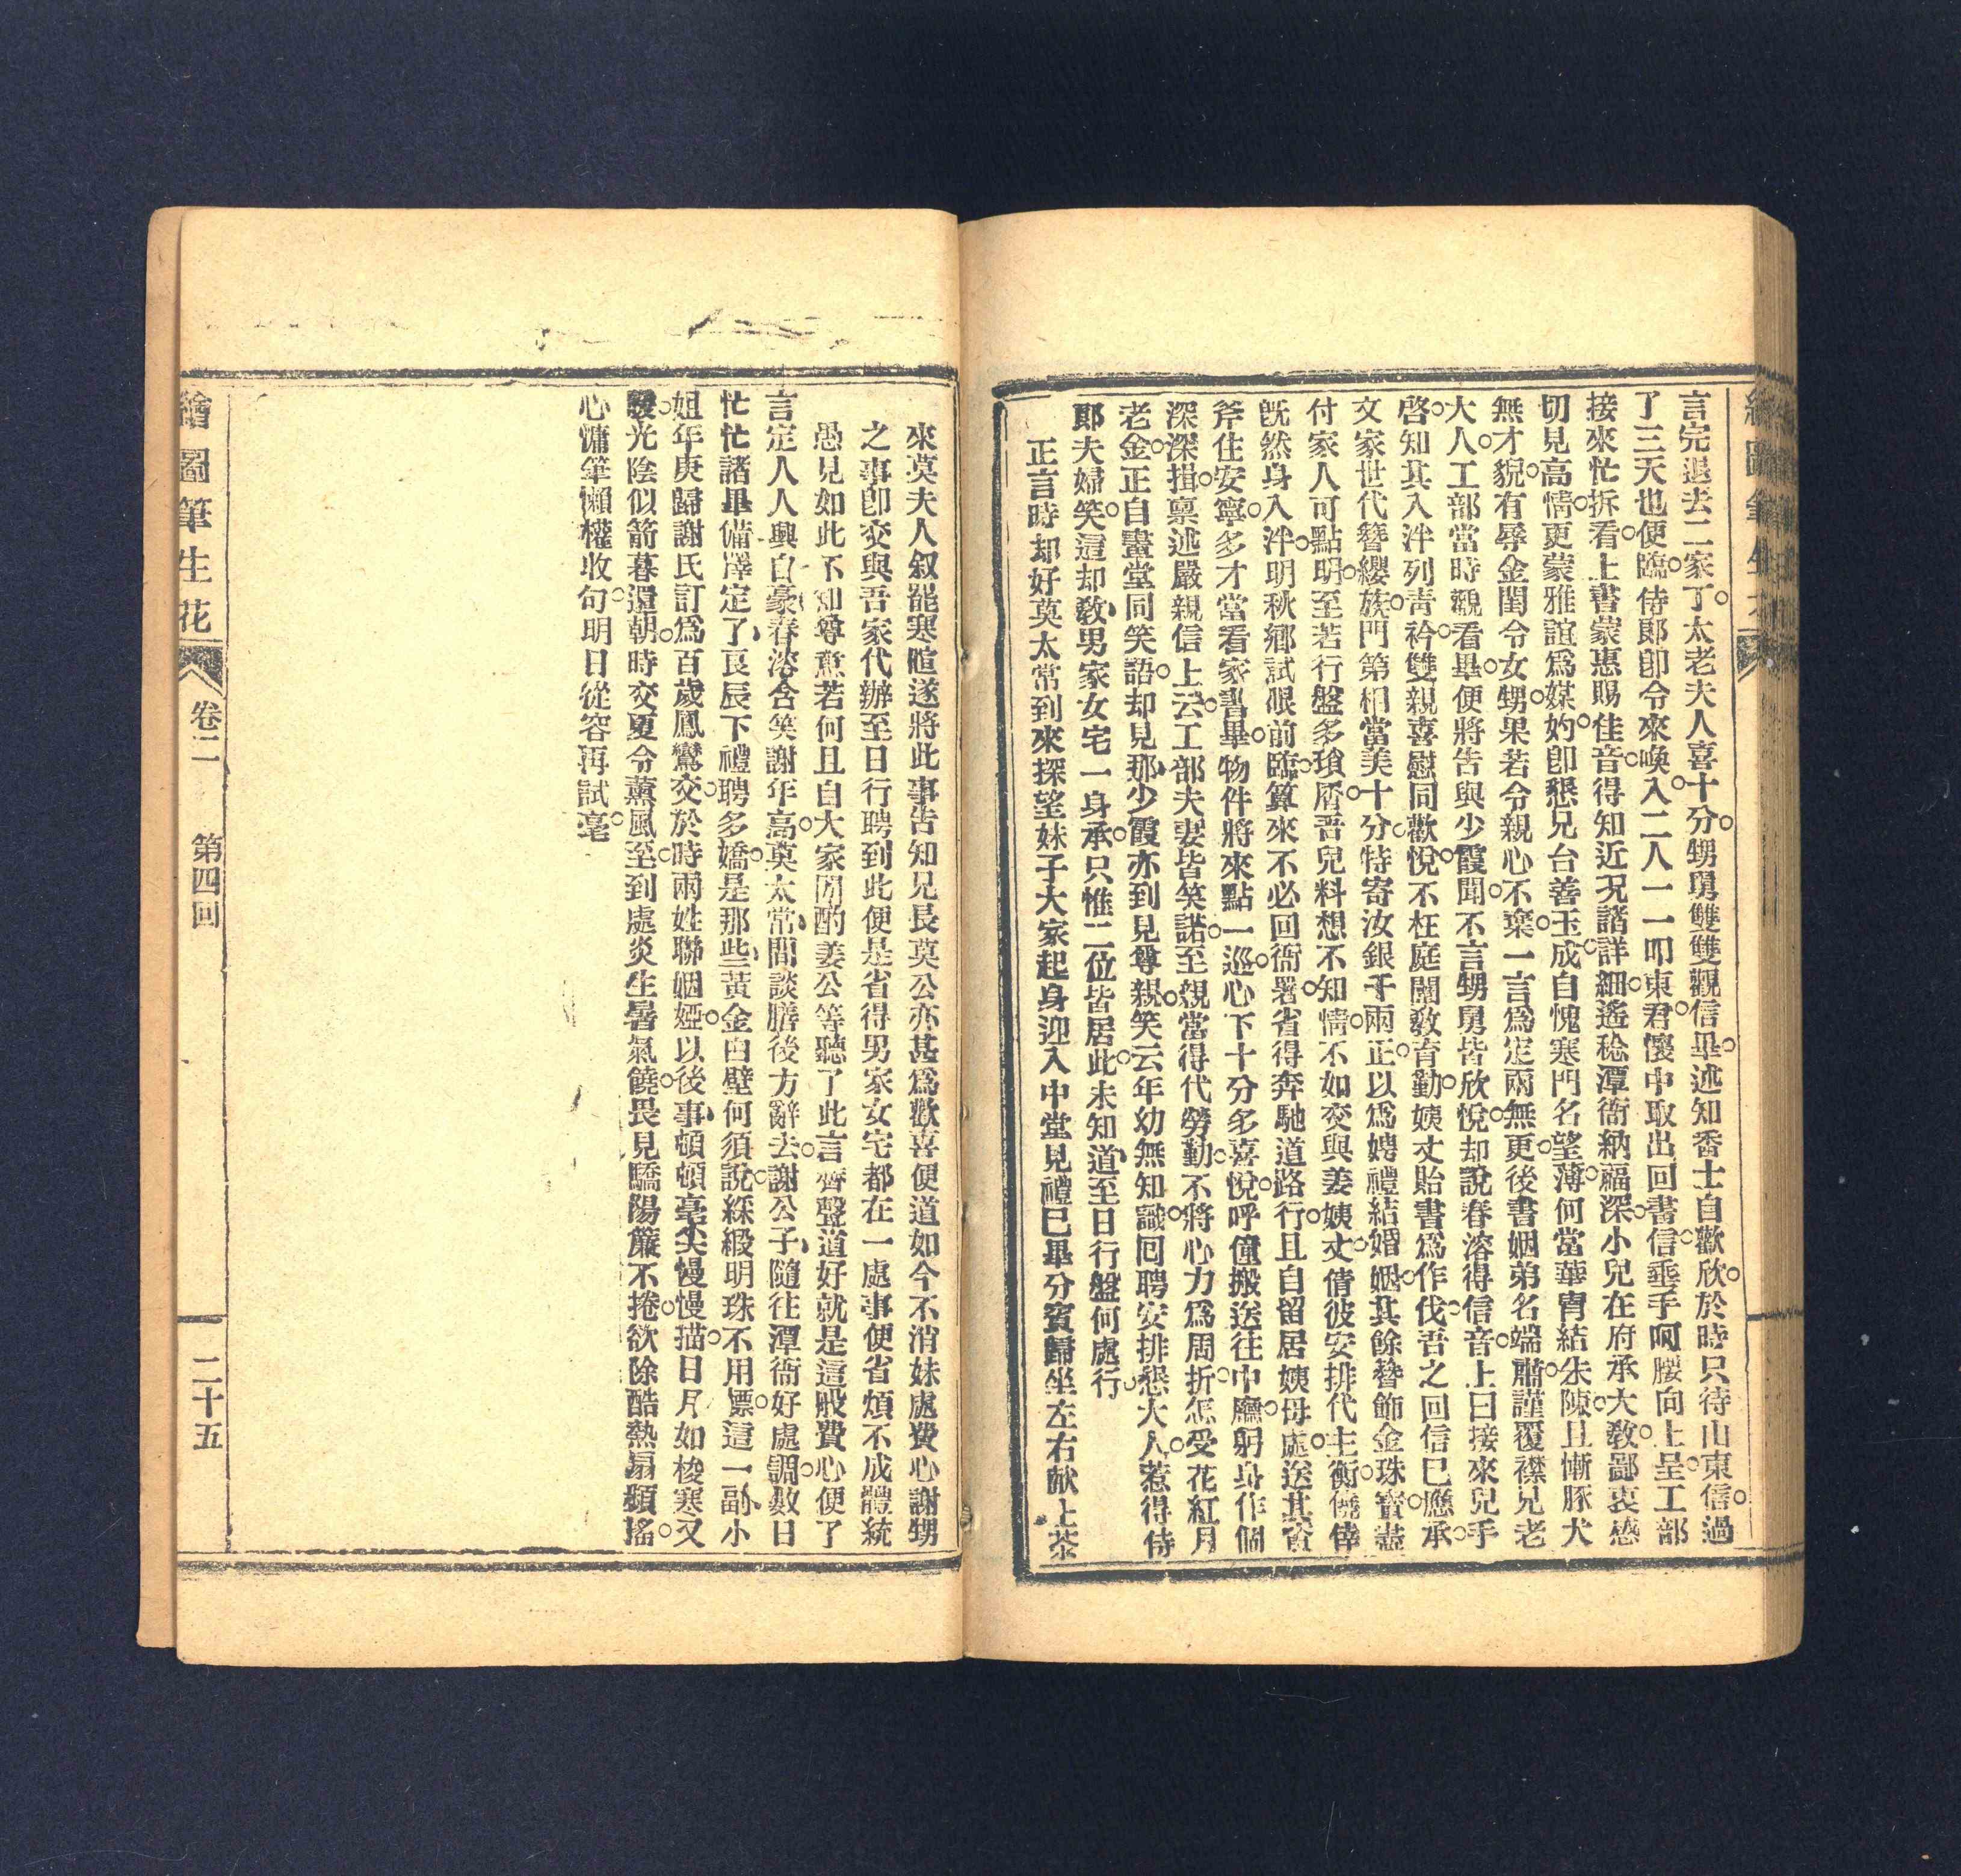 言完退去二家丁太老夫人喜十分甥舅雙雙觀信畢述知香士自歡欣於時只待山東信過
了三天也便臨侍郞卽令來喚入二人一一叩東君懷中取出回書信垂手呵腰向上呈工部
接來忙拆看上書蒙惠賜佳音得知近况諧詳細遙稔潭衙納福深小兒在府承大教鄙衷感
切見高情更蒙雅誼爲媒妁卽懇兄台善玉成自愧寒門名望薄何當華冑結朱陳且慚豚犬
無才貌有辱金閨令女甥果若令親心不棄一言爲定兩無更後書姻弟名端肅謹覆襟兄老
大人工部當時觀看畢便將告與少霞聞不言甥舅皆欣悅却說春溶得信音上曰接來兒手
啓知其入泮列靑衿雙親喜慰同歡悅不枉庭闈敎育勤姨丈貽書爲作伐吾之回信已應承
文家世代簪纓族門第相當美十分特寄汝銀千兩正以爲娉禮結婚姻其餘簪飾金珠寶盡
付家人可點明至若行盤多瑣屑吾兒料想不知情不如交與姜姨丈倩彼安排代主衡僥倖
旣然身入泮明秋鄕試眼前臨算來不必回衙署省得奔馳道路行且自留居姨母處送其資
斧住安寧多才當看家書畢物件將來點一巡心下十分多喜悅呼僮搬送往中廳躬身作個
深深揖禀述嚴親信上云工部夫妻皆笑諾至親當得代勞勤不將心力爲周折怎受花紅月
老金正自畫堂同笑語却見那少霞亦到見尊親笑云年幼無知識回聘安排懇大人惹得侍
郞夫婦笑這却敎男家女宅一身承只惟二位皆居此未知道至日行盤何處行
正言時却好莫太常到來探望妹子大家起身迎入中堂見禮已畢分賓歸坐左右献上茶
來莫夫人叙罷寒暄遂將此事告知兄長莫公亦甚爲歡喜便道如今不消妹處費心謝甥
之事卽交與吾家代辦至日行聘到此便是省得男家女宅都在一處事便省煩不成體統
愚見如此不知尊意若何且自大家閒酌姜公等聽了此言齊聲道好就是這般費心便了
言定人人興自豪春溶含笑謝年高莫太常閒談膳後方辭去謝公子隨往潭衙好處調數日
忙忙諸畢備擇定了良辰下禮聘多嬌是那些黃金白璧何須說綵緞明珠不用標這一副小
姐年庚歸謝氏訂爲百歲鳳鸞交於時兩姓聯姻婭以後事頓頓毫尖慢慢描日月如梭寒又
騣光陰似箭暮還朝時交夏令薰風至到處炎生暑氣饒畏見驕陽簾不捲欲除酷熱扇頻搖
心慵筆懶權收句明日從容再試毫
繪圖筆生花
卷二
第四回
二十五